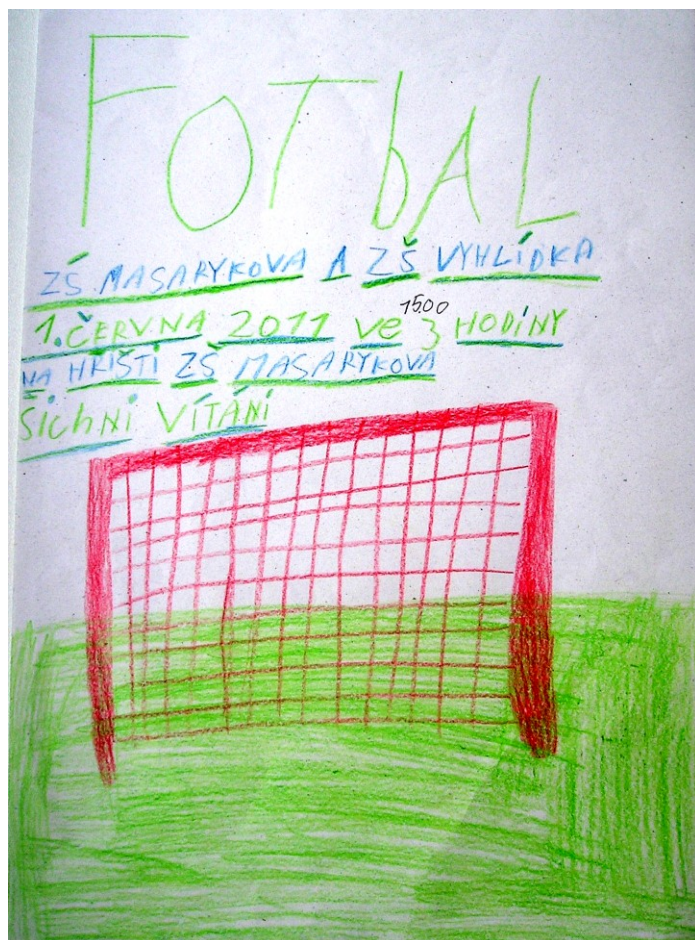 FOTbAL
ZŠ MASARYKOVA A ZŠ VYHLÍDKA
1. ČERVNA 2011 ve 3 HODINY
1500
NA HŘIŠTI ZŠ MASARYKOVA
ŠIChNI VÍTÁNI